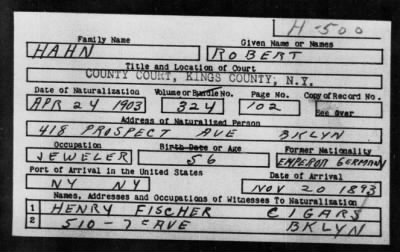 H-500
Family Name Given Name or Names
HAHN ROBERT
Title and Location of Court
COUNTY COURT, KINGS COUNTY, N.Y.
Date of Naturalization Volume or Bundle No. Page No. Copy of Record No.
APR 24 1903 324 102 See Over
Address of Naturalized Person
418 PROSPECT AVE BKLYN
Occupation Birth Date or Age Former Nationality
JEWELER 56 EMPEROR GERMANY
Port of Arrival in the United States Date of Arrival
NY NY NOV 20 1893
Names, Addresses and Occupations of Witnesses To Naturalization
1 HENRY FISCHER CIGARS
2 510-7 AVE BKLYN